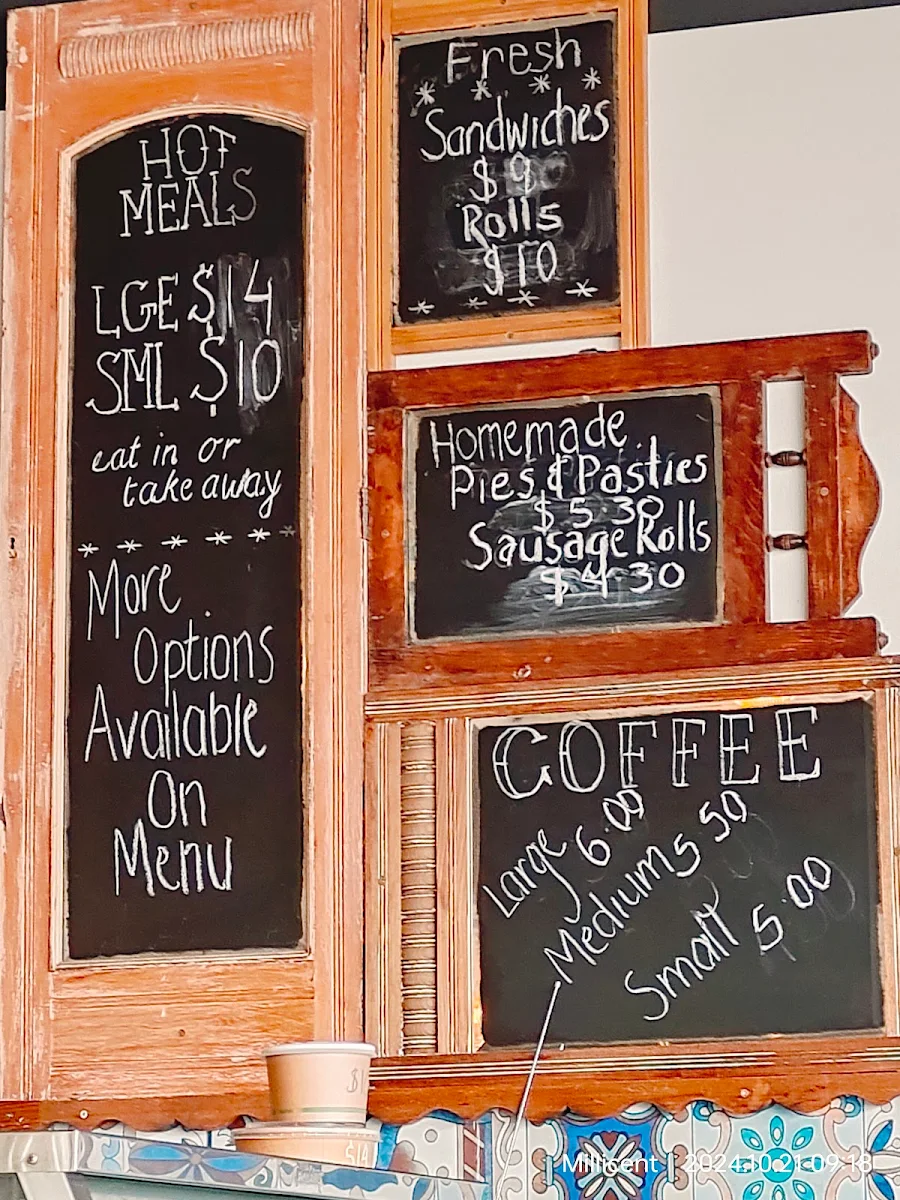 HOT
MEALS
LGE $14
SML $10
eat in or
take away
More
Options
Available
On
Menu
Fresh
Sandwiches
$9
Rolls
$10
Homemade
Pies & Pasties
$5.30
Sausage Rolls
$4.30
COFFEE
Large 6.00
Medium 5 50
Small 5.00
$14
Millicent | 2024.10.21 09:18